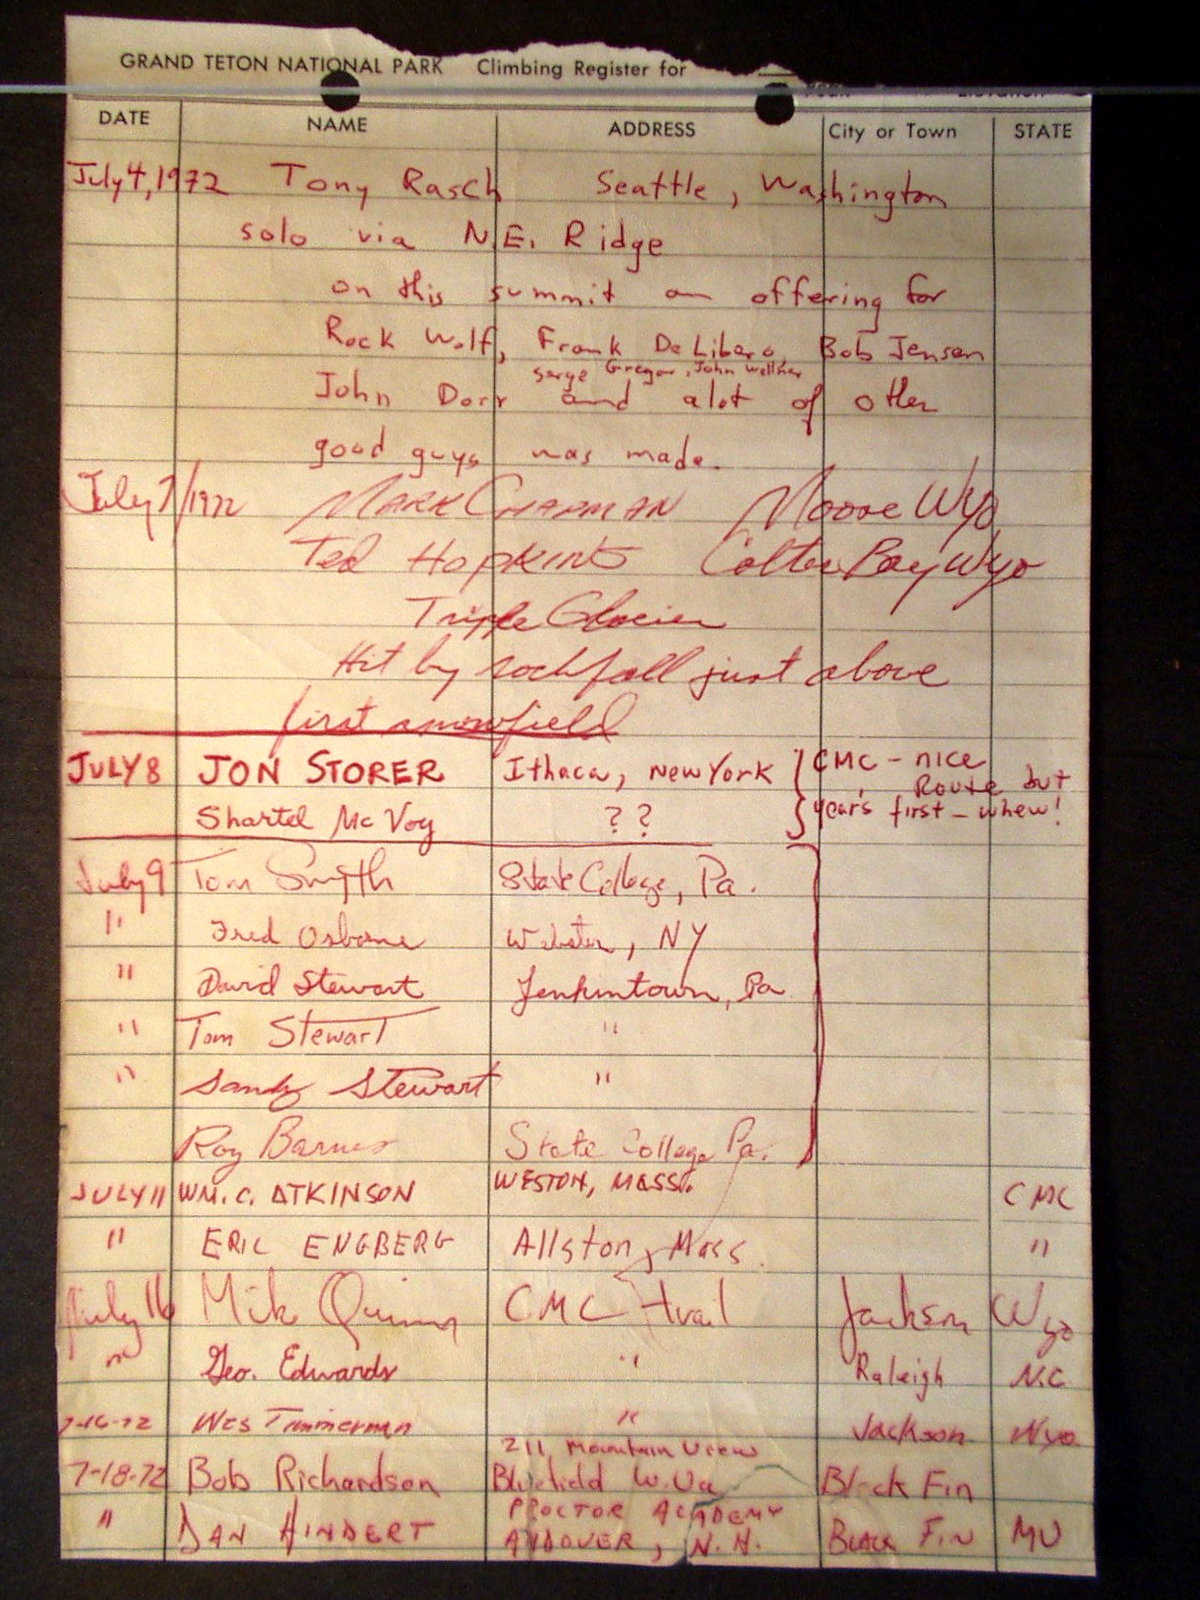 GRAND TETON NATIONAL PARK Climbing Register for
DATE NAME ADDRESS City or Town STATE
July 4, 1972 Tony Rasch Seattle, Washington
solo via N.E. Ridge
on this summit an offering for
Rock Wolf, Frank De Libero, Bob Jensen
Serge Gregor, John Wellner
John Dorr and alot of other
good guys was made.
July 7/1972 MARK CHAPMAN Moose Wyo
Ted HOPKINS Colter Bay Wyo
Triple Glacier
Hit by rockfall just above
first snowfield
JULY 8 JON STORER Ithaca, New York CMC - nice
Route but
Shartel McVoy ?? years first - whew!
July 9 Tom Smyth State College, Pa.
" Fred Osborne Webster, NY
" David Stewart Jenkintown, Pa
" Tom Stewart "
" Sandy Stewart "
Roy Barnes State College Pa.
JULY 11 WM. C. ATKINSON WESTON, MASS. CMC
" ERIC ENGBERG Allston, Mass. "
July 16 Mike Quinn CMC Jackson Wyo
" Geo. Edwards " Raleigh N.C
7-16-72 Wes Timmerman " Jackson Wyo.
211 Mountain View
7-18-72 Bob Richardson Bluefield W.Va Black Fin
PROCTOR ACADEMY
" DAN HINDERT ANDOVER, N.H. BLACK FIN MU